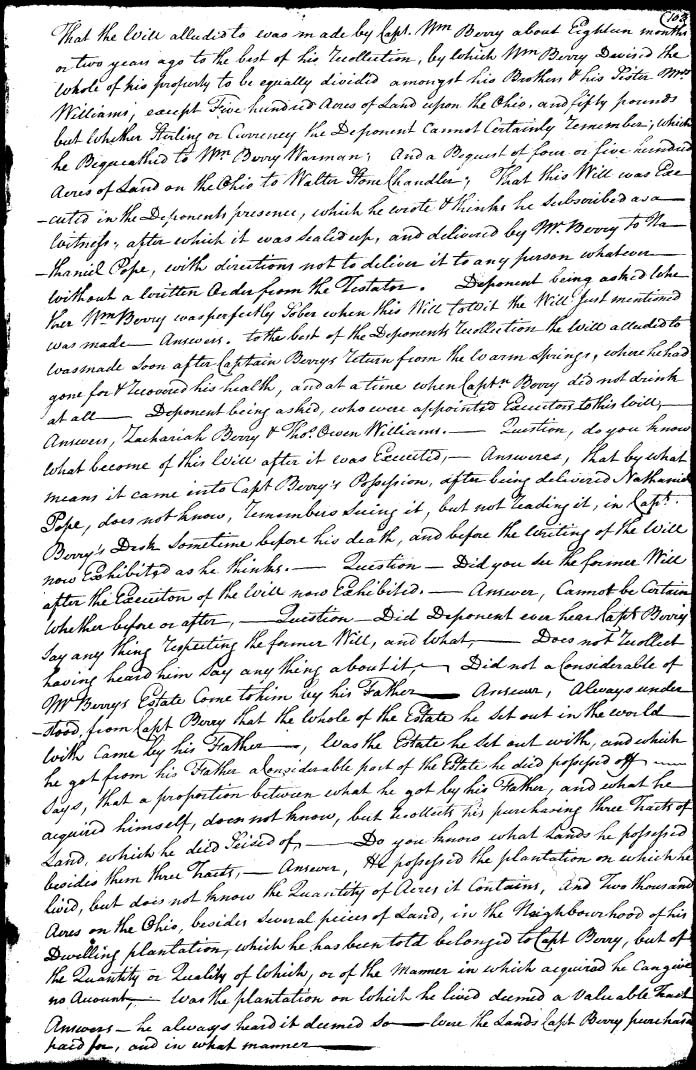 103
That the Will alluded to was made by Capt. Wm Berry about Eighteen months
or two years ago to the best of his Recollection, by which Wm Berry Devised the
whole of his property to be equally divided amongst his Brothers & his Sister Mrs
Williams; except Five hundred Acres of Land upon the Ohio, and fifty pounds
but whether Sterling or Currency the Deponent Cannot Certainly remember; which
he Bequeathed to Wm Berry Warman; And a Bequest of four or five hundred
Acres of Land on the Ohio to Walter Stone Chandler; That this Will was Exe
-cuted in the Deponents presence, which he wrote & thinks he subscribed as a
Witness; after which it was sealed up, and delivered by Mr. Berry to Na
-thaniel Pope, with directions not to deliver it to any person whatever
without a written Order from the Testator. Deponent being asked Whe
ther Wm Berry was perfectly Sober when this Will towit the Will just mentioned
was made — Answers. to the best of the Deponents Recollection the Will alluded to
was made soon after Captain Berrys return from the Warm Springs, where he had
gone for & recovered his health, and at a time when Captn Berry did not drink
at all — Deponent being asked, who were appointed Executors to this Will, —
Answers, Zachariah Berry & Thos. Owen Williams. — Question, do you know
what become of this Will after it was Executed, — Answeres, that by what
means it came into Capt Berry's Possession, after being delivered Nathaniel
Pope, does not know, remembers seeing it, but not reading it, in Capt.
Berry's Desk sometime before his death, and before the writing of the Will
now Exhibited as he thinks. — Question — Did you see the former Will
after the Execution of the Will now Exhibited. — Answer, Cannot be Certain
whether before or after, — Question — Did Deponent ever hear Capt Berry
say any thing respecting the former Will, and what, — Does not recollect
having heard him say any thing about it, — Did not a Considerable of
Mr Berrys Estate come to him by his Father — Answer, Always under
-stood, from Capt Berry that the whole of the Estate he set out in the world
with came by his Father —, Was the Estate he set out with, and which
he got from his Father a Considerable part of the Estate he died possessed of —
says, that a proportion between what he got by his Father, and what he
acquired himself, does not know, but recollects his purchasing three Tracts of
Land, which he died Seised of, — Do you know what Lands he possessed
besides them three Tracts, — Answer, He possessed the plantation on which he
lived, but does not know the Quantity of Acres it Contains, And Two thousand
Acres on the Ohio, besides several peices of Land, in the Neighbourhood of his
Dwelling plantation, which he has been told belonged to Capt Berry, but of
the Quantity or Quality of which, or of the manner in which acquired he can give
no Account, — Was the plantation on which he lived deemed a valuable Tract
Answers — he always heard it deemed so — Were the Lands Capt Berry purchased
paid for, and in what manner —